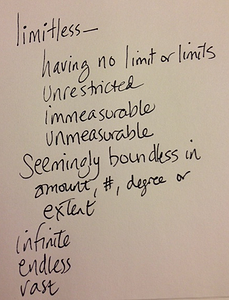 limitless—
having no limit or limits
unrestricted
immeasurable
unmeasurable
Seemingly boundless in
amount, #, degree or
extent
infinite
endless
vast